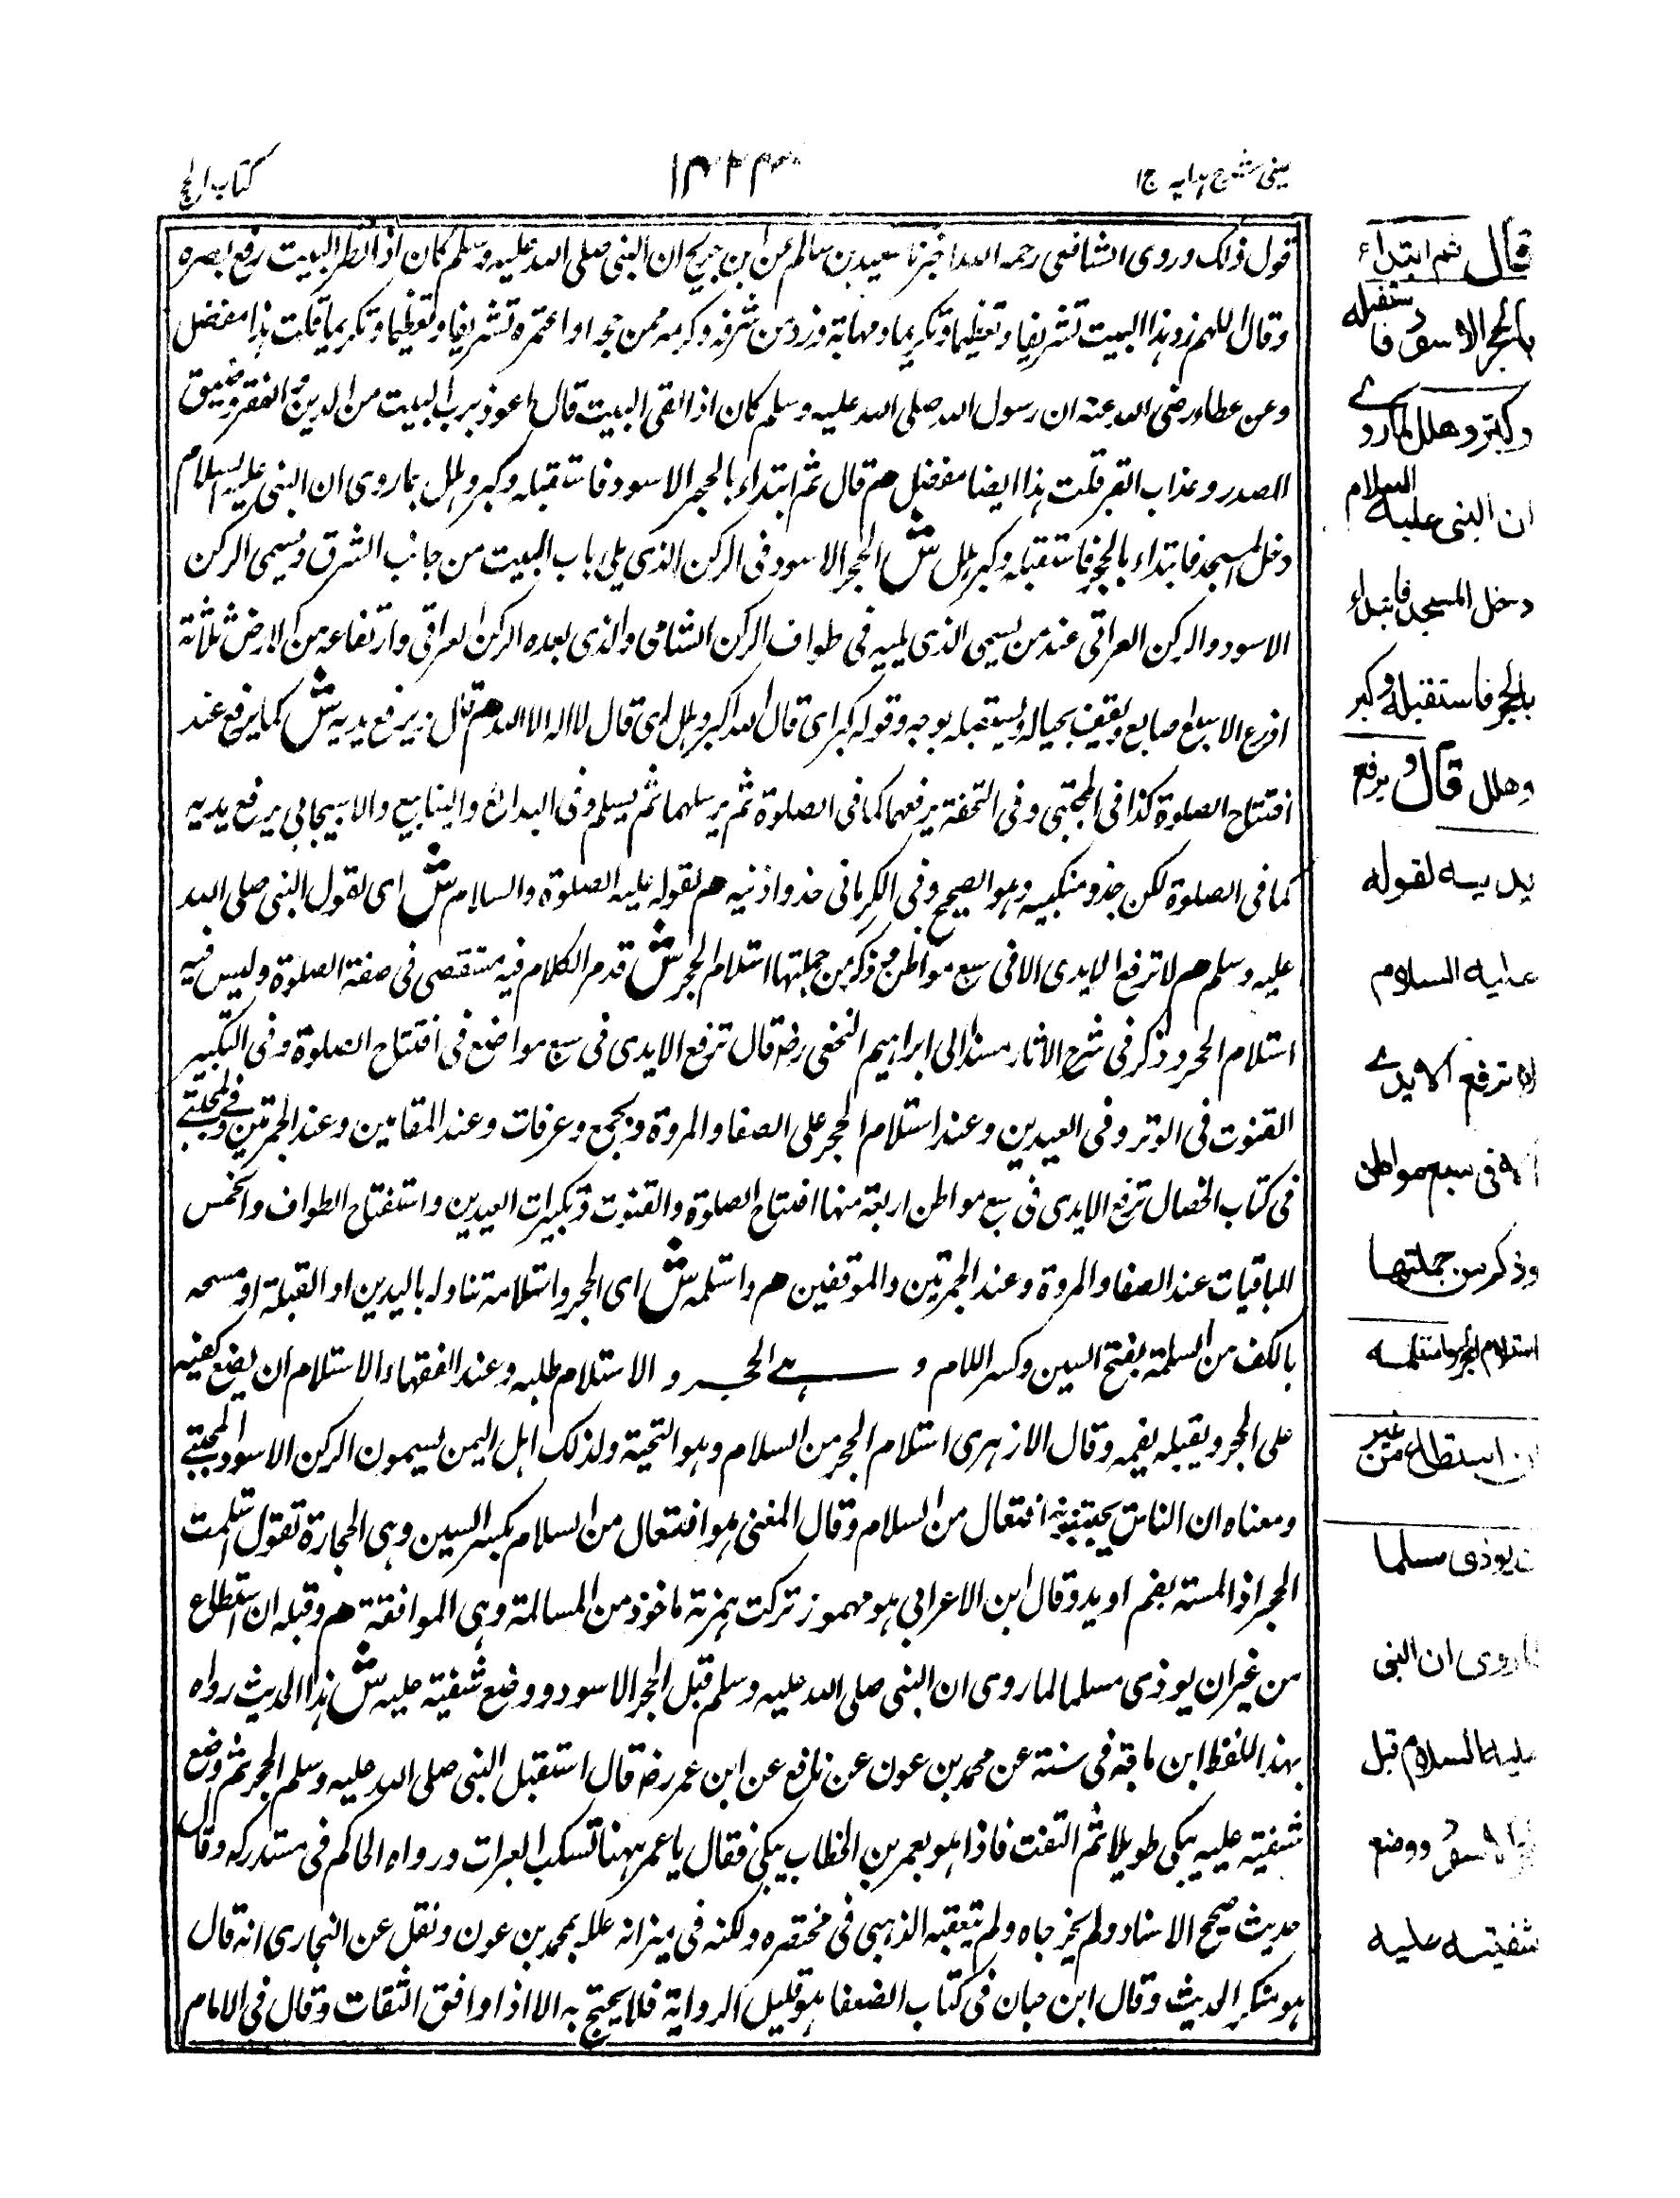 عینی شرح ہدایہ ج۱
کتاب الحج
قول ذلك وروى الشافعى رحمه الله اخبرنا سعيد بن سالم عن ابن جريج ان النبى صلى الله عليه وسلم كان اذا نظر البيت رفع بصره
وقال اللهم زد هذا البيت تشريفا وتعظيما وتكريما ومهابة وزد من شرفه وكرمه ممن حجه او اعتمره تشريفا وتعظيما وتكريما قلت هذا مفضل
وعن عطاء رضى الله عنه ان رسول الله صلى الله عليه وسلم كان اذا لقى البيت قال اعوذ برب البيت من الدين والفقر وضيق
الصدر وعذاب القبر قلت هذا ايضا مفضل هم قال ثم ابتداء بالحجر الاسود فاستقبله وكبر وهلل بما روى ان النبى عليه السلام
دخل المسجد فابتداء بالحجر فاستقبله وكبر هلل ش الحجر الاسود فى الركن الذى يلى باب البيت من جانب الشرق ويسمى الركن
الاسود والركن العراقى عند من يسمى الذى يليه فى طواف الركن الشامى والذى بعده الركن العراقى وارتفاعه من الارض ثلاثة
اذرع الا سبع اصابع ويقف بحياله ويستقبله بوجه وقوله كبر اى قال الله اكبر وهلل اى قال لا اله الا الله هم قال ويرفع يديه ش كما يرفع عند
افتتاح الصلوة كذا فى المجتبى وفى التحفة يرفعهما كما فى الصلوة ثم يرسلهما ثم يسلم وفى البدائع والينابيع والاسبيجابى يرفع يديه
كما فى الصلوة لكن حذو منكبيه وهو الصحيح وفى الكرمانى حذو اذنيه هم لقوله عليه الصلوة والسلام ش اى لقول النبى صلى الله
عليه وسلم هم لا ترفع الايدى الا فى سبع مواطن وذكر من جملتها استلام الحجر ش قد مر الكلام فيه مستقصى فى صفة الصلوة وليس فيه
استلام الحجر وذكر فى شرح الاثار مسندا الى ابراهيم النخعى رضه قال ترفع الايدى فى سبع مواضع فى افتتاح الصلوة وفى التكبير
القنوت فى الوتر وفى العيدين وعند استلام الحجر على الصفا والمروة وبجمع وعرفات وعند المقامين وعند الجمرتين وفى المجتبى
فى كتاب الخصال ترفع الايدى فى سبع مواطن اربعة منها افتتاح الصلوة والقنوت وتكبيرات العيدين واستفتاح الطواف والخمس
الباقيات عند الصفا والمروة وعند الجمرتين والموقفين هم واستلمه ش اى الحجر واستلامه تناوله باليدين او القبلة او مسحه
بالكف من السلمة بفتح السين وكسر اللام وهى الحجر والاستلام طلبه وعند الفقهاء الاستلام ان يضع كفيه
على الحجر ويقبله بفمه وقال الازهرى استلام الحجر من السلام وهو التحية ولذلك اهل اليمن يسمون الركن الاسود المجتبى
ومعناه ان الناس يحيونه افتعال من السلام وقال المغنى هو افتعال من السلام بكسر السين وهى الحجارة تقول استلمت
الحجر اذا لمسته بفم او يد وقال ابن الاعرابى هو مهموز تركت همزته ماخوذ من المسالمة وهى الموافقة هم وقبله ان استطاع
من غير ان يوذى مسلما لما روى ان النبى صلى الله عليه وسلم قبل الحجر الاسود ووضع شفتيه عليه ش هذا الحديث رواه
بهذا اللفظ ابن ماجة فى سننه عن محمد بن عون عن نافع عن ابن عمر رضه قال استقبل النبى صلى الله عليه وسلم الحجر ثم وضع
شفتيه عليه يبكى طويلا ثم التفت فاذا هو بعمر بن الخطاب يبكى فقال يا عمر ههنا تسكب العبرات ورواه الحاكم فى مستدركه وقال
حديث صحيح الاسناد ولم يخرجاه ولم يتعقبه الذهبى فى مختصره ولكنه فى ميزانه علله بمحمد بن عون ونقل عن البخارى انه قال
هو منكر الحديث وقال ابن حبان فى كتاب الضعفا هو قليل الرواية فلا يحتج به الا اذا وافق الثقات وقال فى الامام
قال ثم ابتداء
بالحجر الاسود فاستقبله
وكبر وهلل لما روى
ان النبى عليه السلام
دخل المسجد فابتداء
بالحجر فاستقبله وكبر
وهلل قال ويرفع
يديه لقوله
عليه السلام
لا ترفع الايدى
الا فى سبع مواطن
وذكر من جملتها
استلام الحجر واستلمه
ان استطاع من غير
ان يوذى مسلما
لما روى ان النبى
عليه السلام قبل
الاسود ووضع
شفتيه عليه